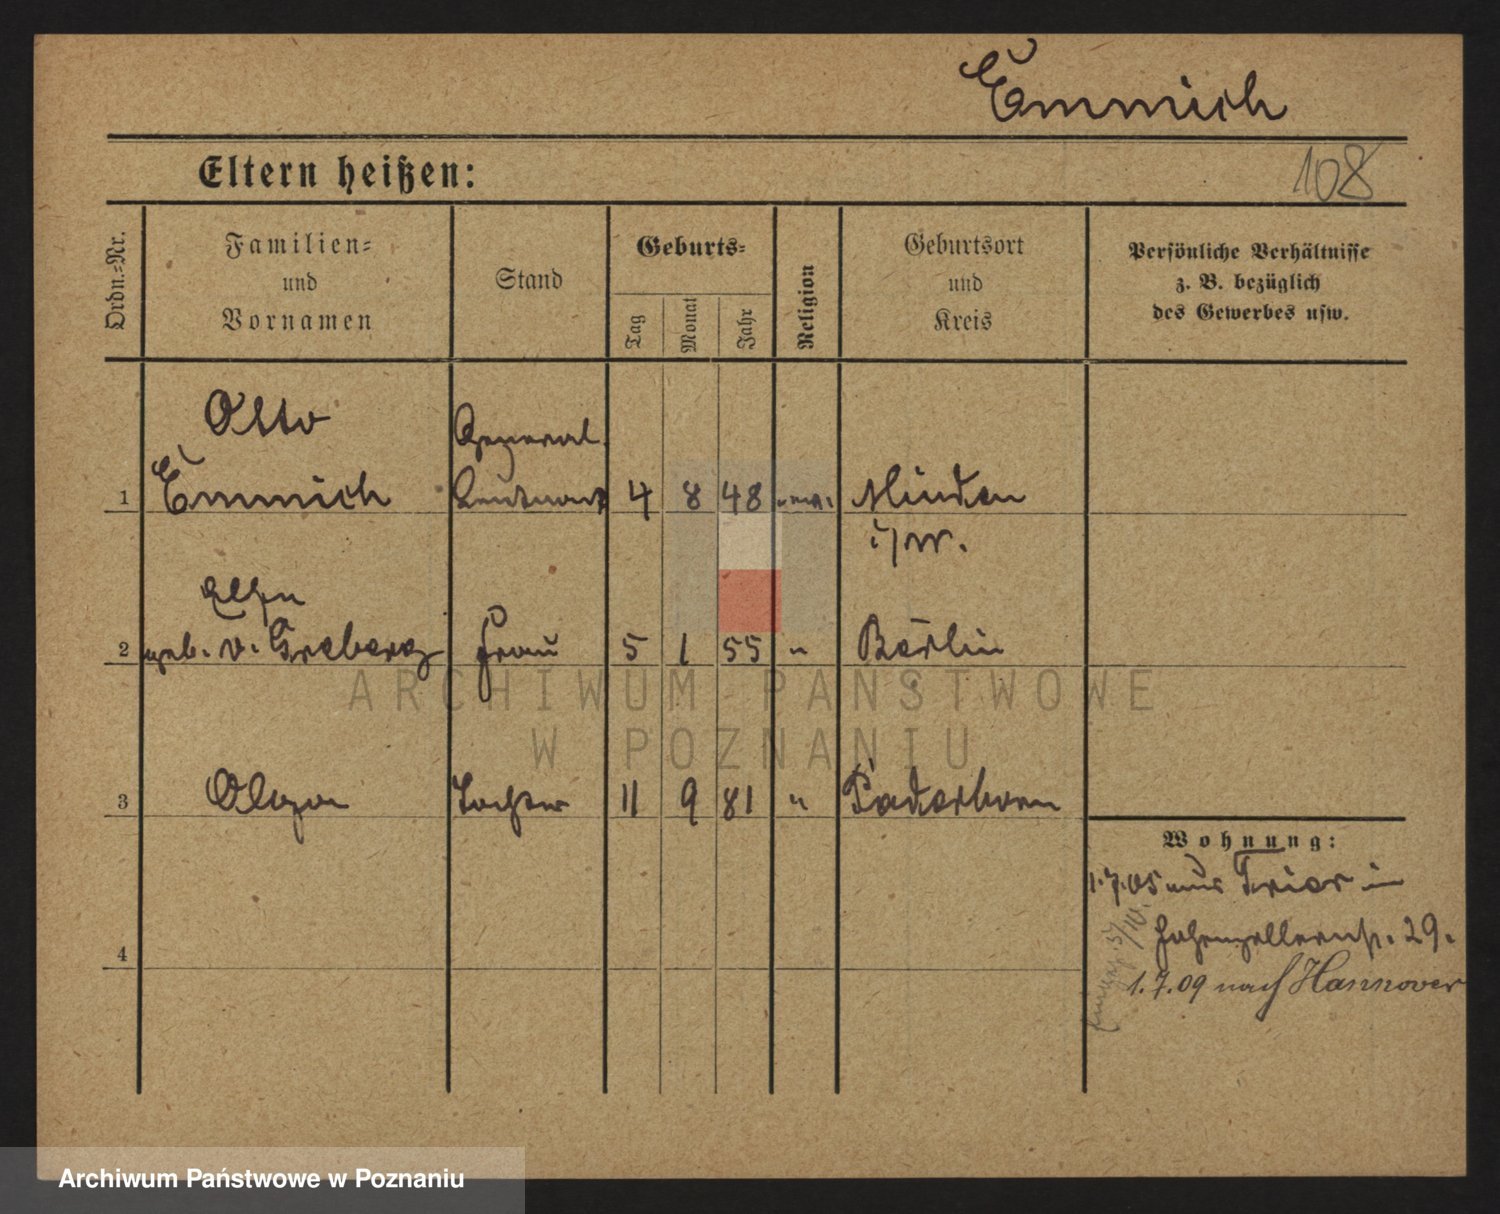 Emmich
Eltern heißen:
108
Ordn.=Nr.
Familien=
und
Vornamen
Stand
Geburts=
Tag
Monat
Jahr
Religion
Geburtsort
und
Kreis
Persönliche Verhältnisse
z. B. bezüglich
des Gewerbes usw.
Otto
General
1 Emmich Leutnant 4 8 48 ev. Minden
i/W.
2 geb. v. Frau 5 1 55 " Berlin
3 Olga Tochter 11 9 81 " Paderborn
4
Wohnung:
1.7.05 aus Trier in
Hohenzollernstr. 29.
1.7.09 nach Hannover
ARCHIWUM PAŃSTWOWE
W POZNANIU
Archiwum Państwowe w Poznaniu